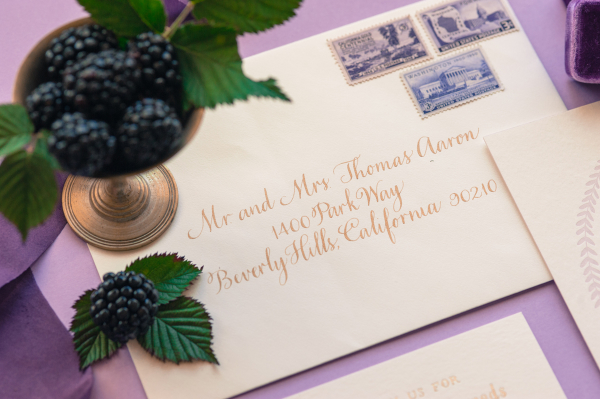 Mr and Mrs Thomas Aaron
1400 Park Way
Beverly Hills, California 90210
UNITED STATES POSTAGE
US FOR